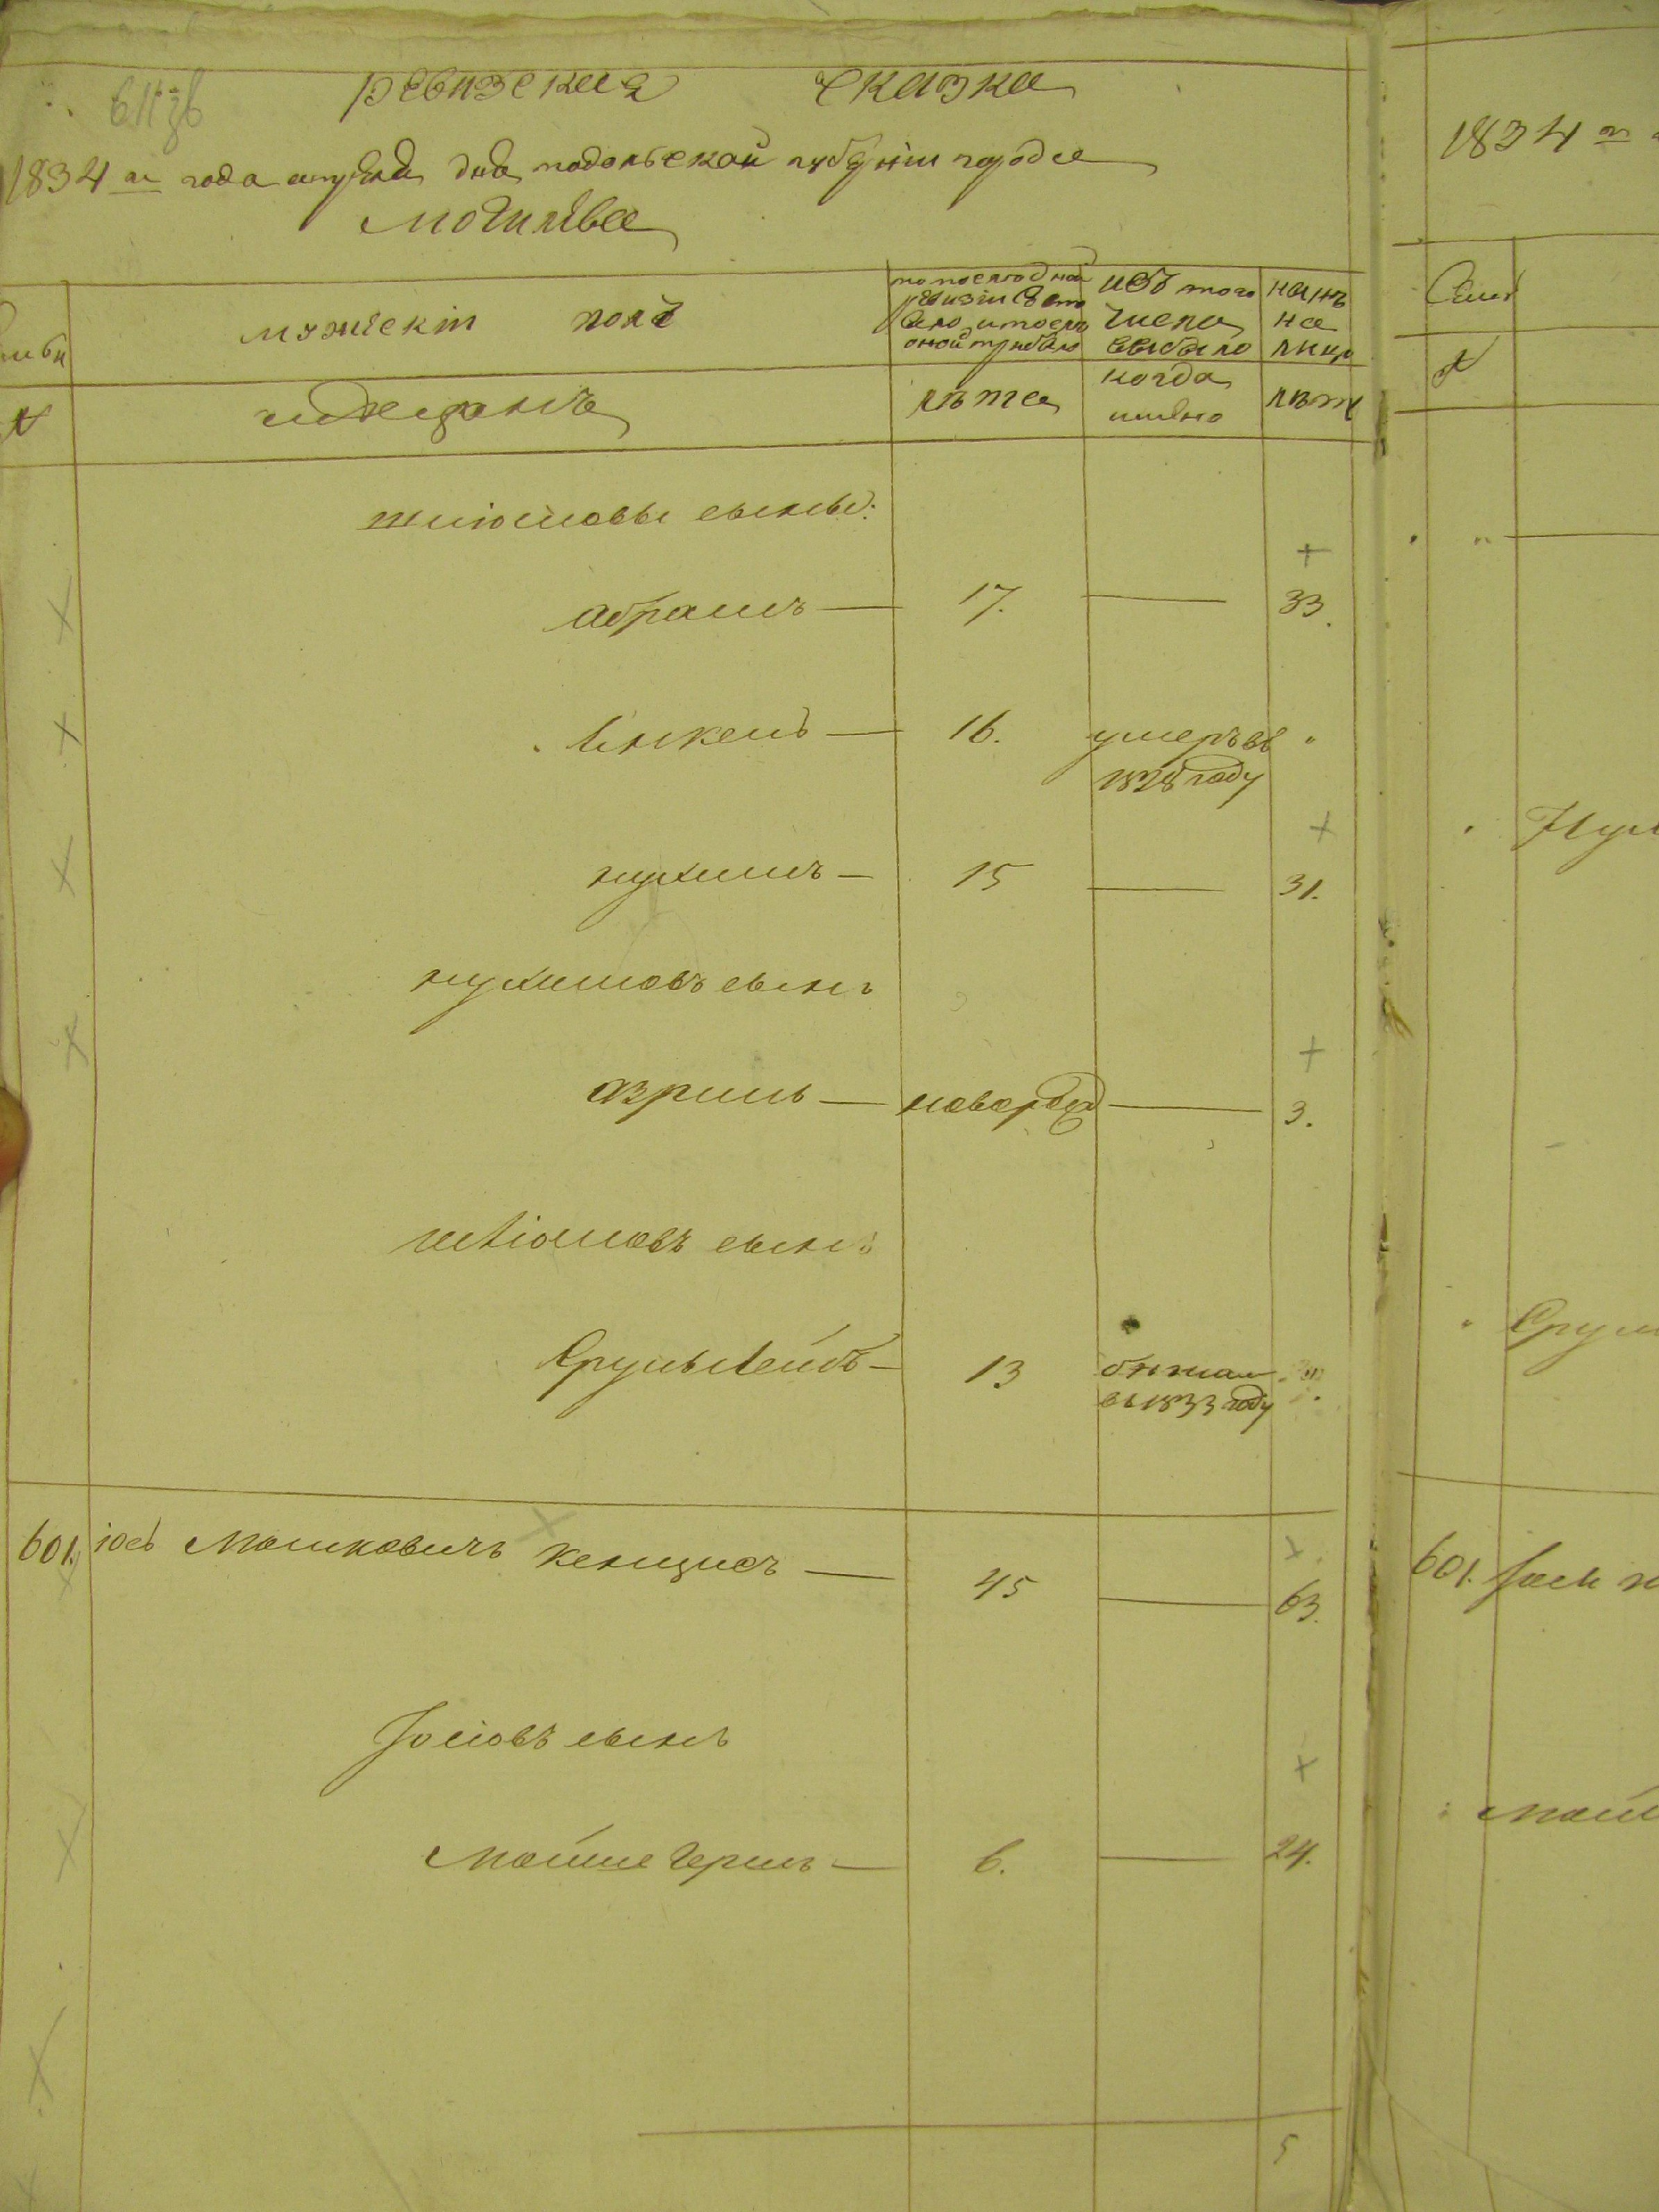 Ревизская Сказка
1834 го года апреля дня подольской губерніи города
Могилева
мужескій полъ
по последней
ревизіи состо
яло и после
оной прибыло
изъ того
числа
выбыло
нынѣ
на
лицо
мещанѣ
лѣта
когда
имянно
лѣта
сыны:
Абрамъ — 17. — 33.
Янкель — 16. умеръ въ "
1828 году
нухимъ — 15 — 31.
нухимовъ сынъ
азриль — новорож — 3.
сынъ
Сруль Лейбъ — 13 бежалъ
въ 1833 году
601. іось Мошковичъ — 45 — 63.
Іосіовъ сынъ
Мойше Герш — 6. — 24.
5
1834 го
Семьи
№
Нухи
Срул
601. Іось
Мойш